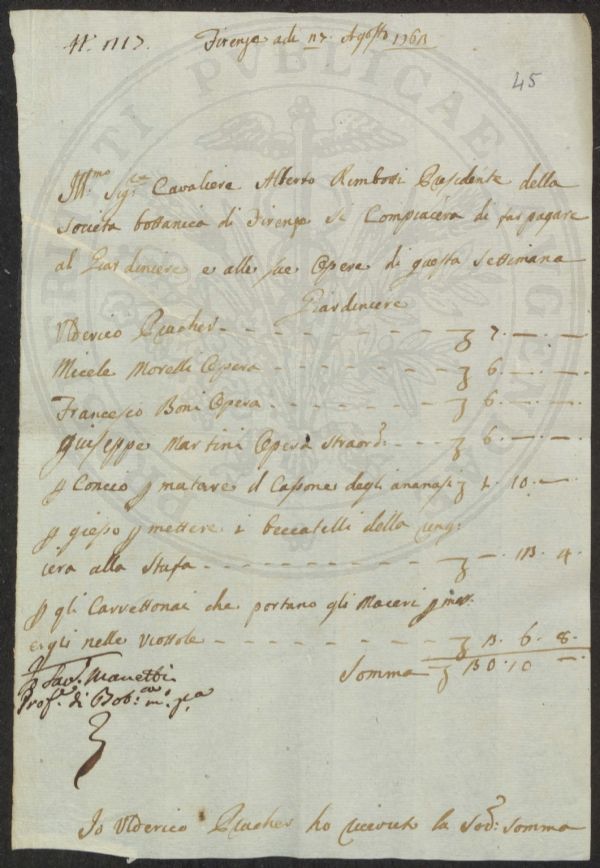 Firenze adi 17 Agosto 1763
45
Ill.mo Sig.re Cavaliere Alberto Rimbotti Presidente della
Società bottanica di Firenze si Compiacerà di far pagare
al Giardiniere e alle sue Opere di questa Settimana
Giardiniere
Ulderico Prucher - - - 7. — —
Micele Morelli Opera - - - 6. — —
Francesco Boni Opera - - - 6. — —
Giuseppe Martini Opera straord. - - - 6. — —
p Concio p mutare il Cassone degli ananasi 10. —
p giesso p mettere i beccatelli della
iera alla Stufa - - - —. 13. 4
p gli Carrettonai che portano gli Maceri p
ergli nelle Viottole - - - 6. 8.
Somma 30. 10 —
Sav. Manetti
Prof. di Bot. m. p.a
Io Ulderico Prucher ho ricevuto la Sod: Somma